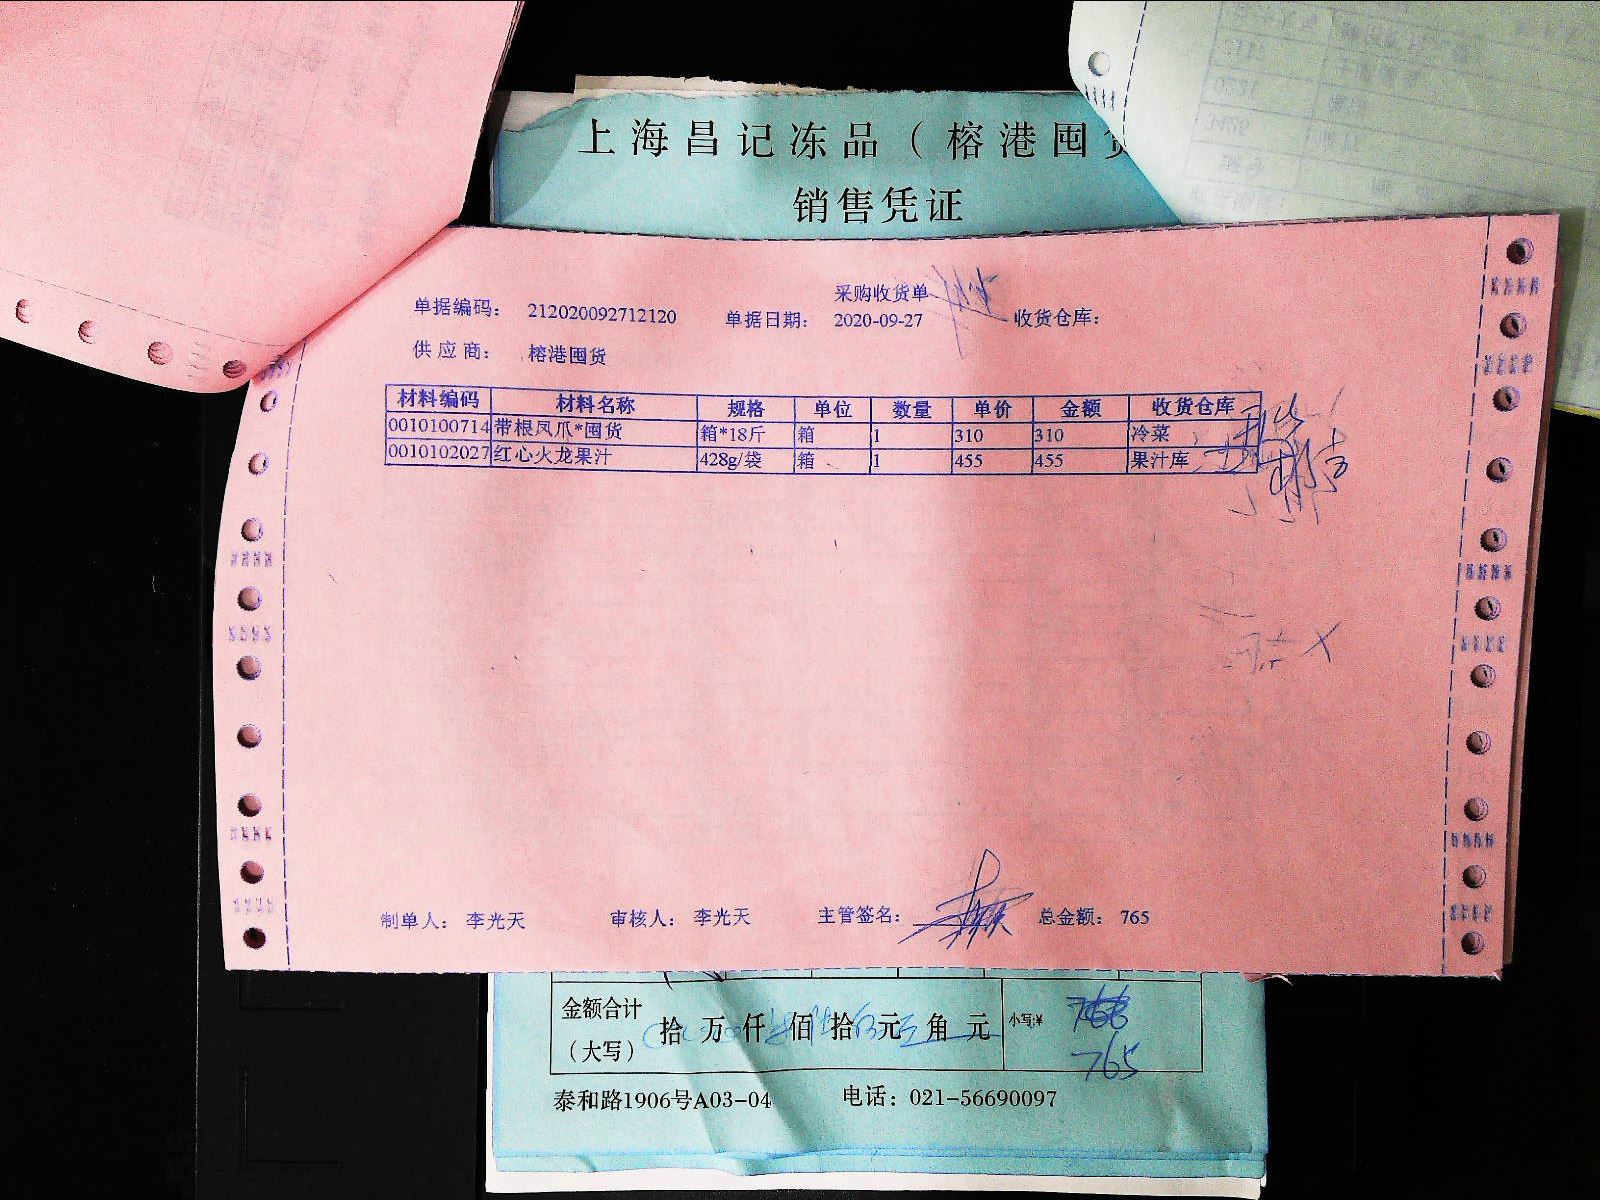 上海昌记冻品（榕港囤
销售凭证
采购收货单
单据编码： 212020092712120 单据日期： 2020-09-27 收货仓库：
供应商： 榕港囤货
材料编码 材料名称 规格 单位 数量 单价 金额 收货仓库
0010100714 带根凤爪*囤货 箱*18斤 箱 1 310 310 冷菜
0010102027 红心火龙果汁 428g/袋 箱 1 455 455 果汁库
制单人： 李光天 审核人： 李光天 主管签名： 总金额： 765
金额合计
（大写） 拾 万 仟 佰 拾 元 角 元 小写:¥
765
泰和路1906号A03-04 电话：021-56690097